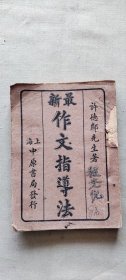 許德鄰先生著
最新
作文指導法
上海中原書局發行